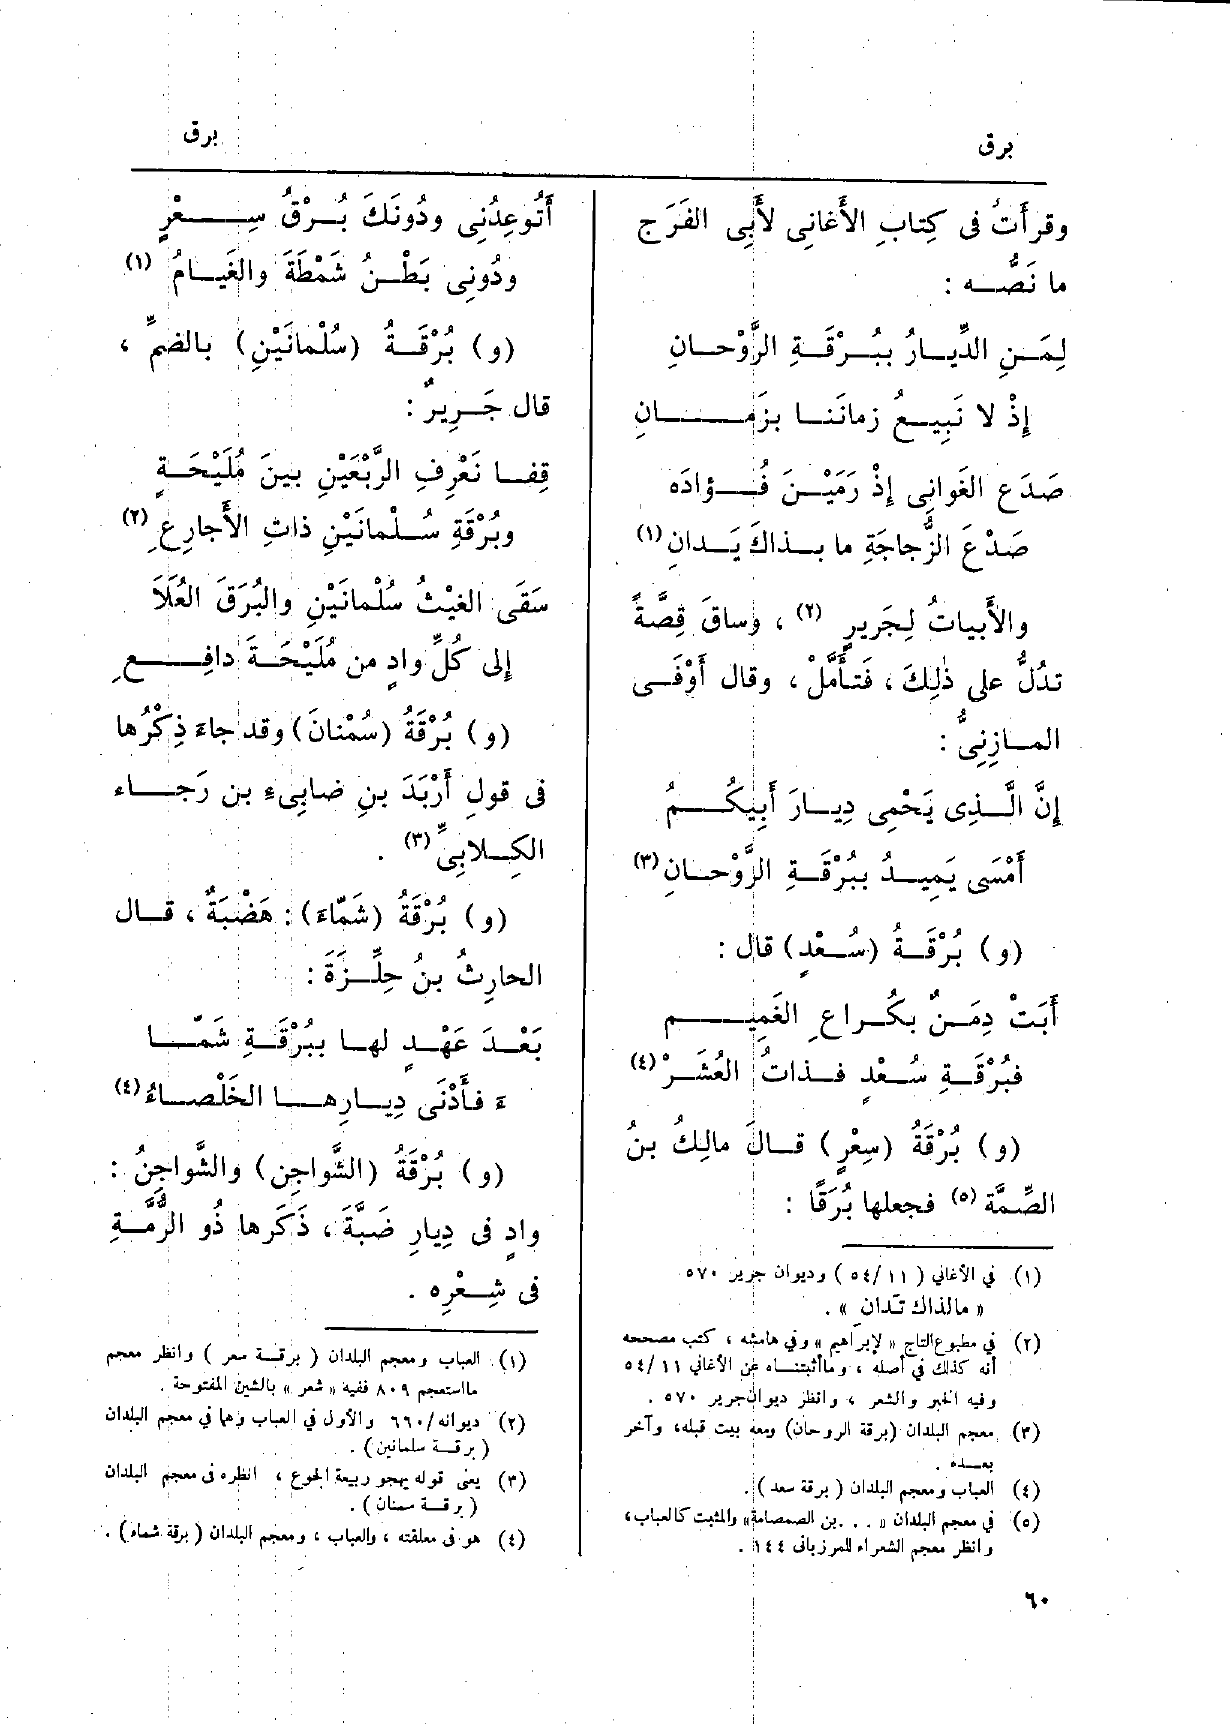 برق
برق
وقرأَتُ فى كِتابِ الأَغانِى لأَبِى الفَرَجِ
ما نَصُّه :
لِمَنِ الدِّيارُ بِبُرْقَةِ الرَّوْحانِ
إِذْ لا نَبِيعُ زمانَنا بزَمانِ
صَدَع الغَوانِى إِذْ رَمَيْنَ فُؤادَه
صَدْعَ الزُّجاجَةِ ما بذاكَ يَدانِ (١)
والأَبياتُ لِجَريرٍ (٢) ، وساقَ قِصَّةً
تدُلُّ على ذٰلِكَ ، فَتأَمَّلْ ، وقال أَوْفَى
المازِنِىُّ :
إِنَّ الَّذِى يَحْمِى دِيارَ أَبِيكُمُ
أَمْسَى يَمِيدُ ببُرْقَةِ الرَّوْحانِ (٣)
(و) بُرْقَةُ (سُعْدٍ) قال :
أَبَتْ دِمَنٌ بكُراعِ الغَمِيمِ
فبُرْقَةِ سُعْدٍ فذاتُ العُشَرْ (٤)
(و) بُرْقَةُ (سِعْرٍ) قالَ مالِكُ بنُ
الصِّمَّة (٥) فجعلها بُرَقًا :
(١) في الأغاني ( ١١ /٥٤ ) وديوان جرير ٥٧٠
« مالذاك تَدان » .
(٢) في مطبوع التاج « لإبراهيم » وفي هامشه ، كتب مصححه
أنه كذلك في أصله ، وما أثبتناه عن الأغاني ١١ /٥٤
وفيه الخبر والشعر ، وانظر ديوان جرير ٥٧٠ .
(٣) معجم البلدان (برقة الروحان) ومعه بيت قبله، وآخر
بعده .
(٤) العباب ومعجم البلدان ( برقة سعد ) .
(٥) في معجم البلدان « . . . بن الصمصامة» والمثبت كالعباب،
وانظر معجم الشعراء للمرزبانى ١٤٤ .
أَتُوعِدُنِى ودُونَكَ بُرْقُ سِعْرٍ
ودُونِى بَطْنُ شَمْطَةَ والغَيامُ (١)
(و) بُرْقَةُ (سُلْمانَيْنِ) بالضمِّ ،
قال جَرِيرٌ :
قِفا نَعْرِفِ الرَّبْعَيْنِ بينَ مُلَيْحَةٍ
وبُرْقَةِ سُلْمانَيْنِ ذاتِ الأَجارِعِ (٢)
سَقَى الغَيْثُ سُلْمانَيْنِ والبُرَقَ العُلَا
إلى كُلِّ وادٍ من مُلَيْحَةَ دافِعِ
(و) بُرْقَةُ (سُمْنانَ) وقد جاءَ ذِكْرُها
فى قولِ أَرْبَدَ بنِ ضابِىءِ بن رَجاء
الكِلابِىِّ (٣) .
(و) بُرْقَةُ (شَمّاءَ) : هَضْبَةٌ ، قال
الحارِثُ بنُ حِلِّزَةَ :
بَعْدَ عَهْدٍ لها ببُرْقَةِ شَمّا
ءَ فأَدْنَى دِيارِها الخَلْصاءُ (٤)
(و) بُرْقَةُ (الشَّواجِن) والشَّواجِنُ :
وادٍ فى دِيارِ ضَبَّةَ ، ذَكَرها ذُو الرُّمَّةِ
فى شِعْرِه .
(١) العباب ومعجم البلدان ( برقة سعر ) وانظر معجم
مااستعجم ٨٠٩ ففيه « شعر » بالشين المفتوحة .
(٢) ديوانه /٦٦٠ والأول في العباب وهما في معجم البلدان
( برقة سلمانين ) .
(٣) يعنى قوله يهجو ربيعة الجوع ، انظره فى معجم البلدان
( برقة سمنان ) .
(٤) هو فى معلقته ، والعباب ، ومعجم البلدان ( برقة شماء ) .
٦٠